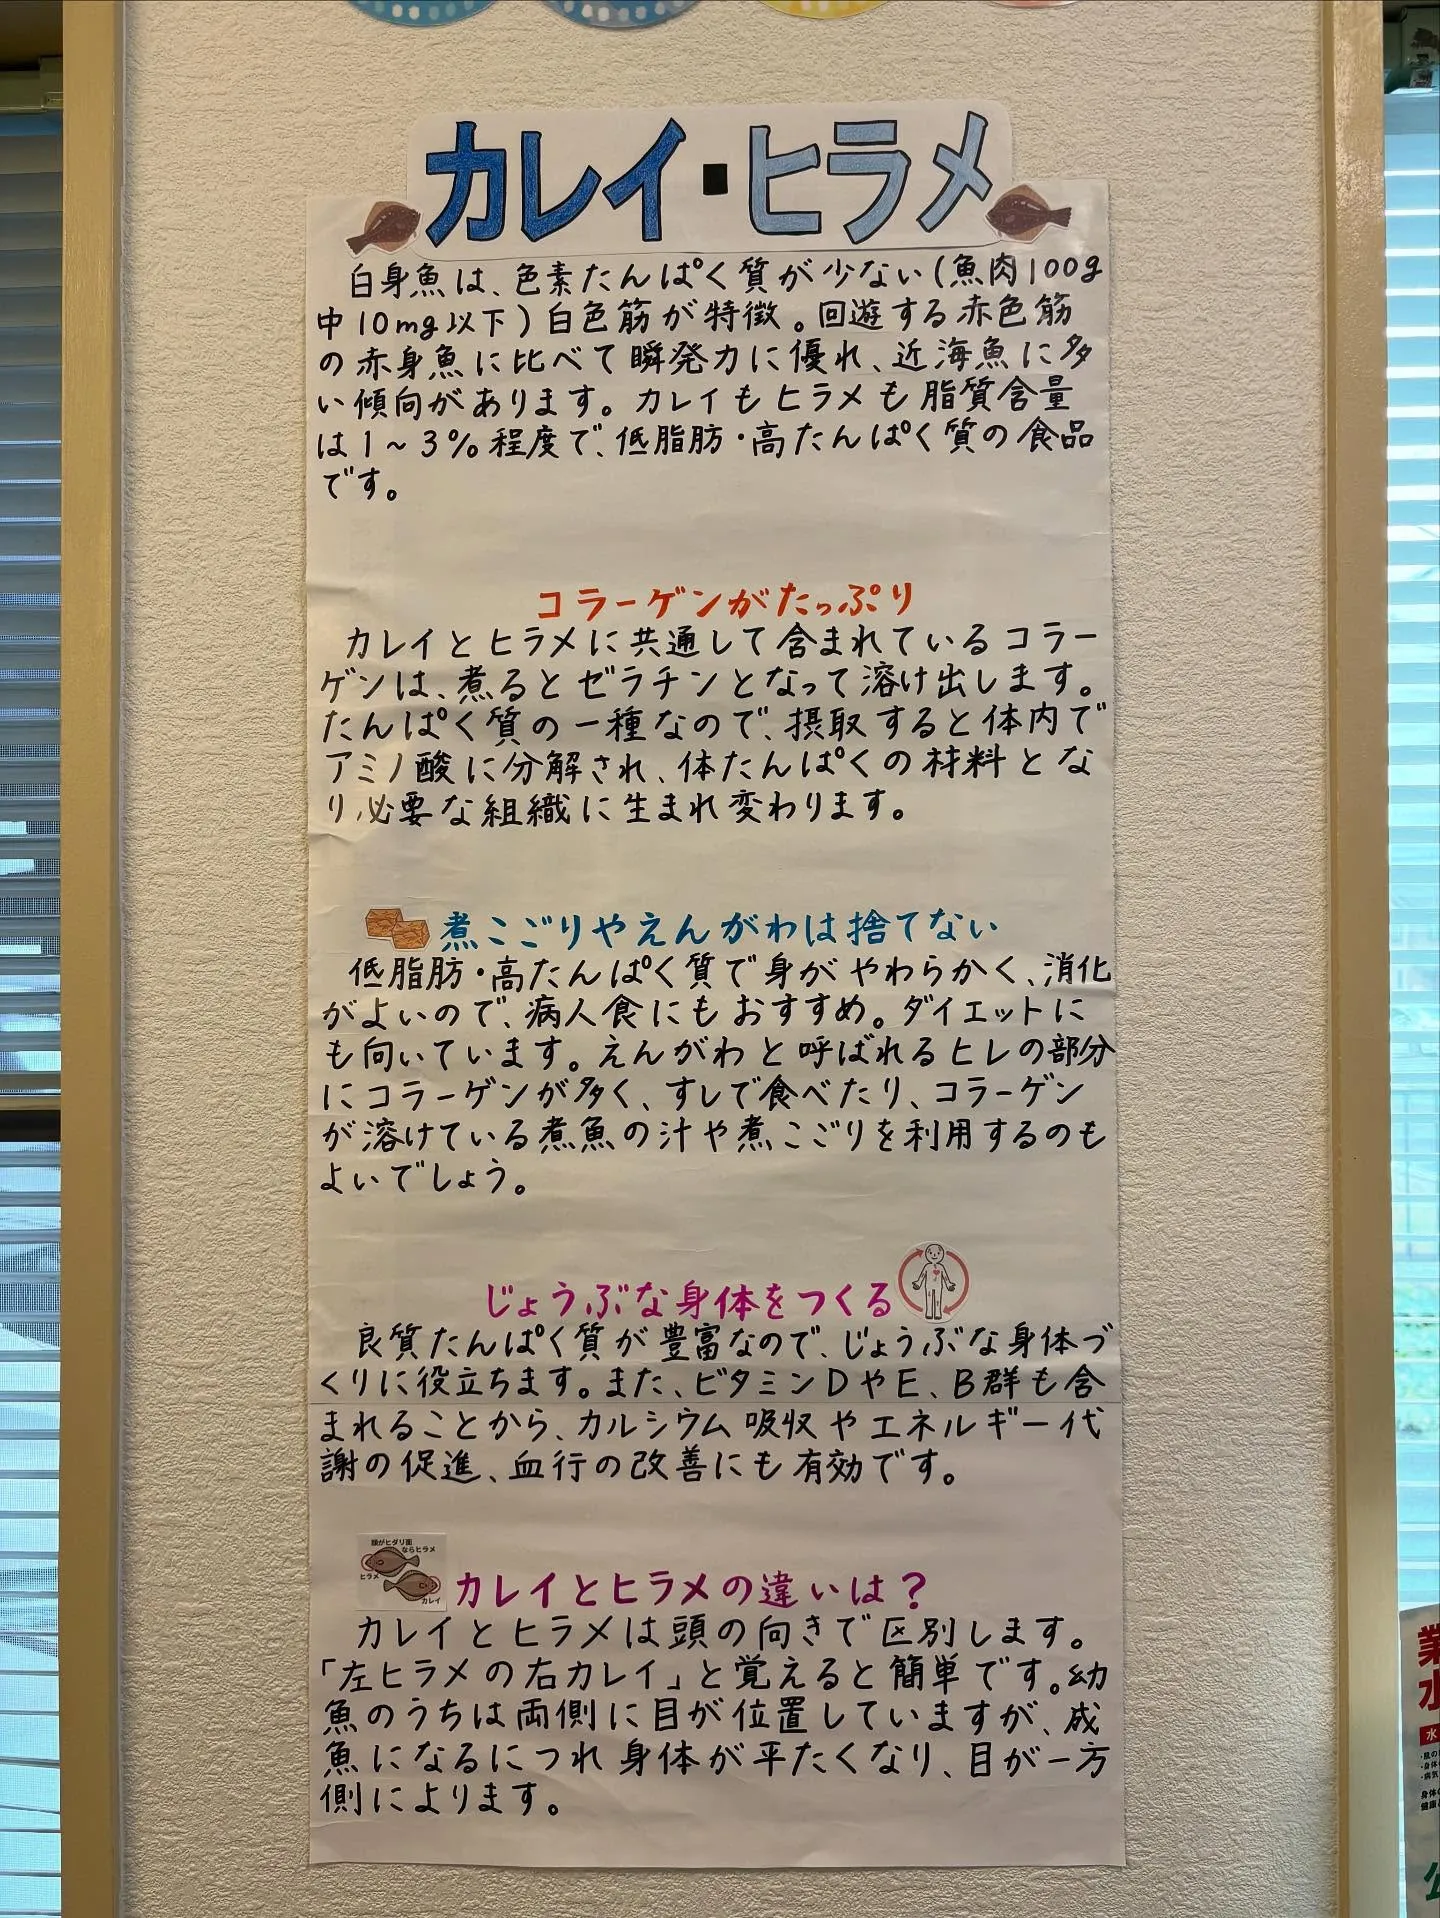 カレイ・ヒラメ
白身魚は、色素たんぱく質が少ない(魚肉100g
中10mg以下)白色筋が特徴。回遊する赤色筋
の赤身魚に比べて瞬発力に優れ、近海魚に多
い傾向があります。カレイもヒラメも脂質含量
は1～3%程度で、低脂肪・高たんぱく質の食品
です。
コラーゲンがたっぷり
カレイとヒラメに共通して含まれているコラー
ゲンは、煮るとゼラチンとなって溶け出します。
たんぱく質の一種なので、摂取すると体内で
アミノ酸に分解され、体たんぱくの材料とな
り、必要な組織に生まれ変わります。
煮こごりやえんがわは捨てない
低脂肪・高たんぱく質で身がやわらかく、消化
がよいので、病人食にもおすすめ。ダイエットに
も向いています。えんがわと呼ばれるヒレの部分
にコラーゲンが多く、すしで食べたり、コラーゲン
が溶けている煮魚の汁や煮こごりを利用するのも
よいでしょう。
じょうぶな身体をつくる
良質たんぱく質が豊富なので、じょうぶな身体づ
くりに役立ちます。また、ビタミンDやE、B群も含
まれることから、カルシウム吸収やエネルギー代
謝の促進、血行の改善にも有効です。
頭がヒダリ面
ならヒラメ
ヒラメ
カレイ
カレイとヒラメの違いは?
カレイとヒラメは頭の向きで区別します。
「左ヒラメの右カレイ」と覚えると簡単です。幼
魚のうちは両側に目が位置していますが、成
魚になるにつれ身体が平たくなり、目が一方
側によります。
業
水
水